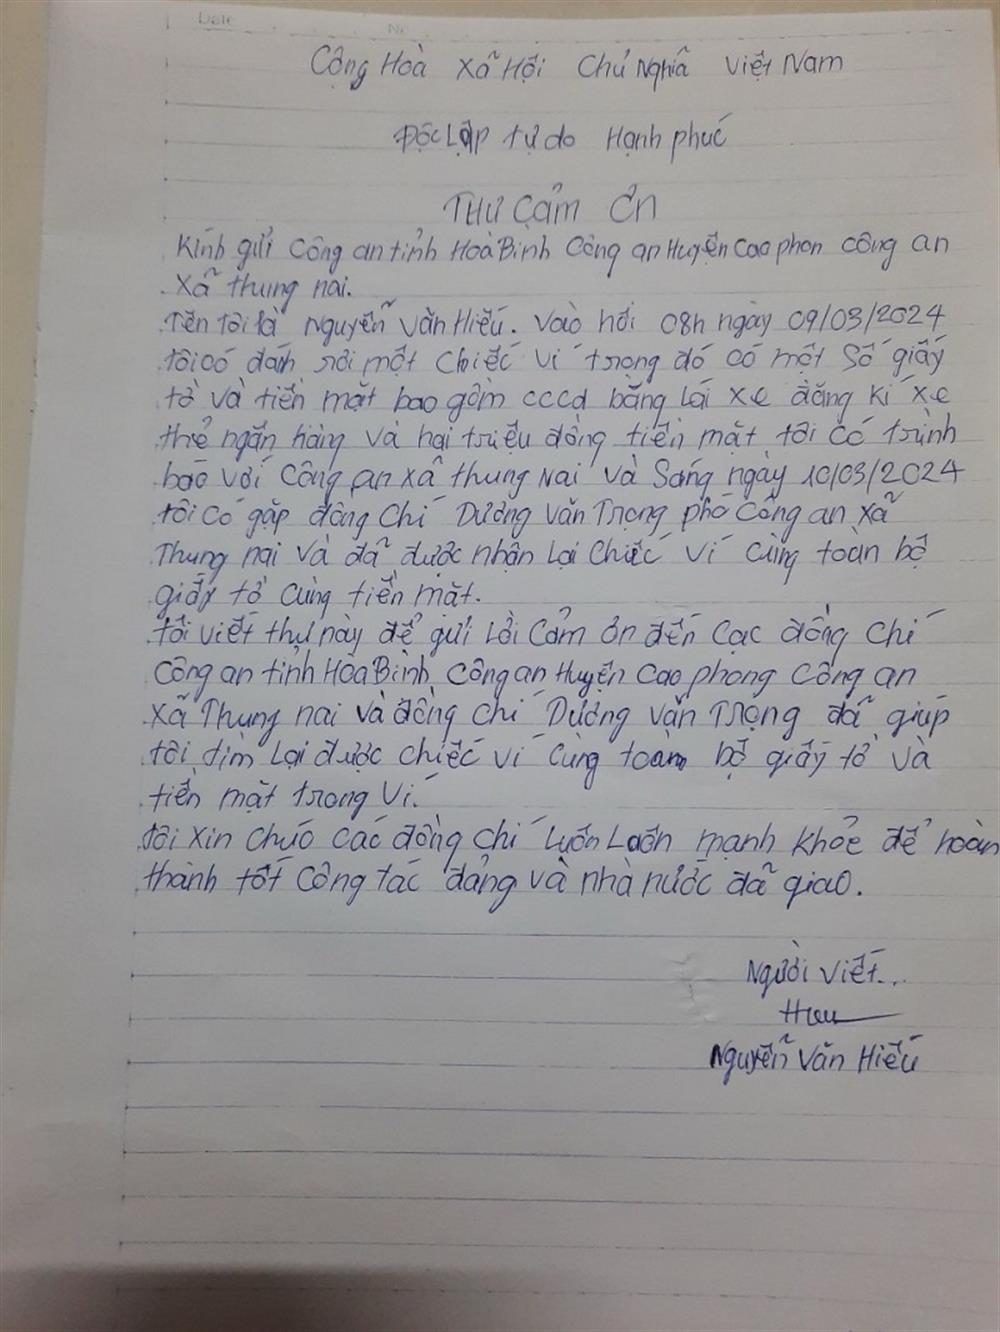 Date No
Cộng Hoà Xã Hội Chủ Nghĩa Việt Nam
Độc Lập tự do Hạnh phúc
THƯ Cảm Ơn
Kính gửi Công an tỉnh Hoà Bình Công an Huyện Cao phon công an
Xã thung nai.
Tên tôi là Nguyễn Văn Hiếu. Vào hồi 08h ngày 09/03/2024
tôi có đánh rơi một Chiếc Ví trong đó có một Số giấy
tờ và tiền mặt bao gồm cccd bằng lái xe đăng kí xe
thẻ ngân hàng và hai triệu đồng tiền mặt tôi có trình
báo với Công an xã thung Nai và Sáng ngày 10/03/2024
tôi có gặp đồng Chí Dương Văn Trọng phó Công an xã
Thung nai và đã được nhận lại Chiếc Ví cùng toàn bộ
giấy tờ cùng tiền mặt.
tôi viết thư này để gửi Lời Cảm ơn đến Các đồng Chí
Công an tỉnh Hòa Bình Công an Huyện Cao phong Công an
xã Thung nai và đồng chí Dương Văn Trọng đã giúp
tôi tìm Lại được chiếc Ví Cùng toàn bộ giấy tờ và
tiền mặt trong Ví.
tôi xin chúc các đồng chí Luôn Luôn mạnh khỏe để hoàn
thành tốt Công tác đảng và nhà nước đã giao.
Người Viết...
Hiếu
Nguyễn Văn Hiếu